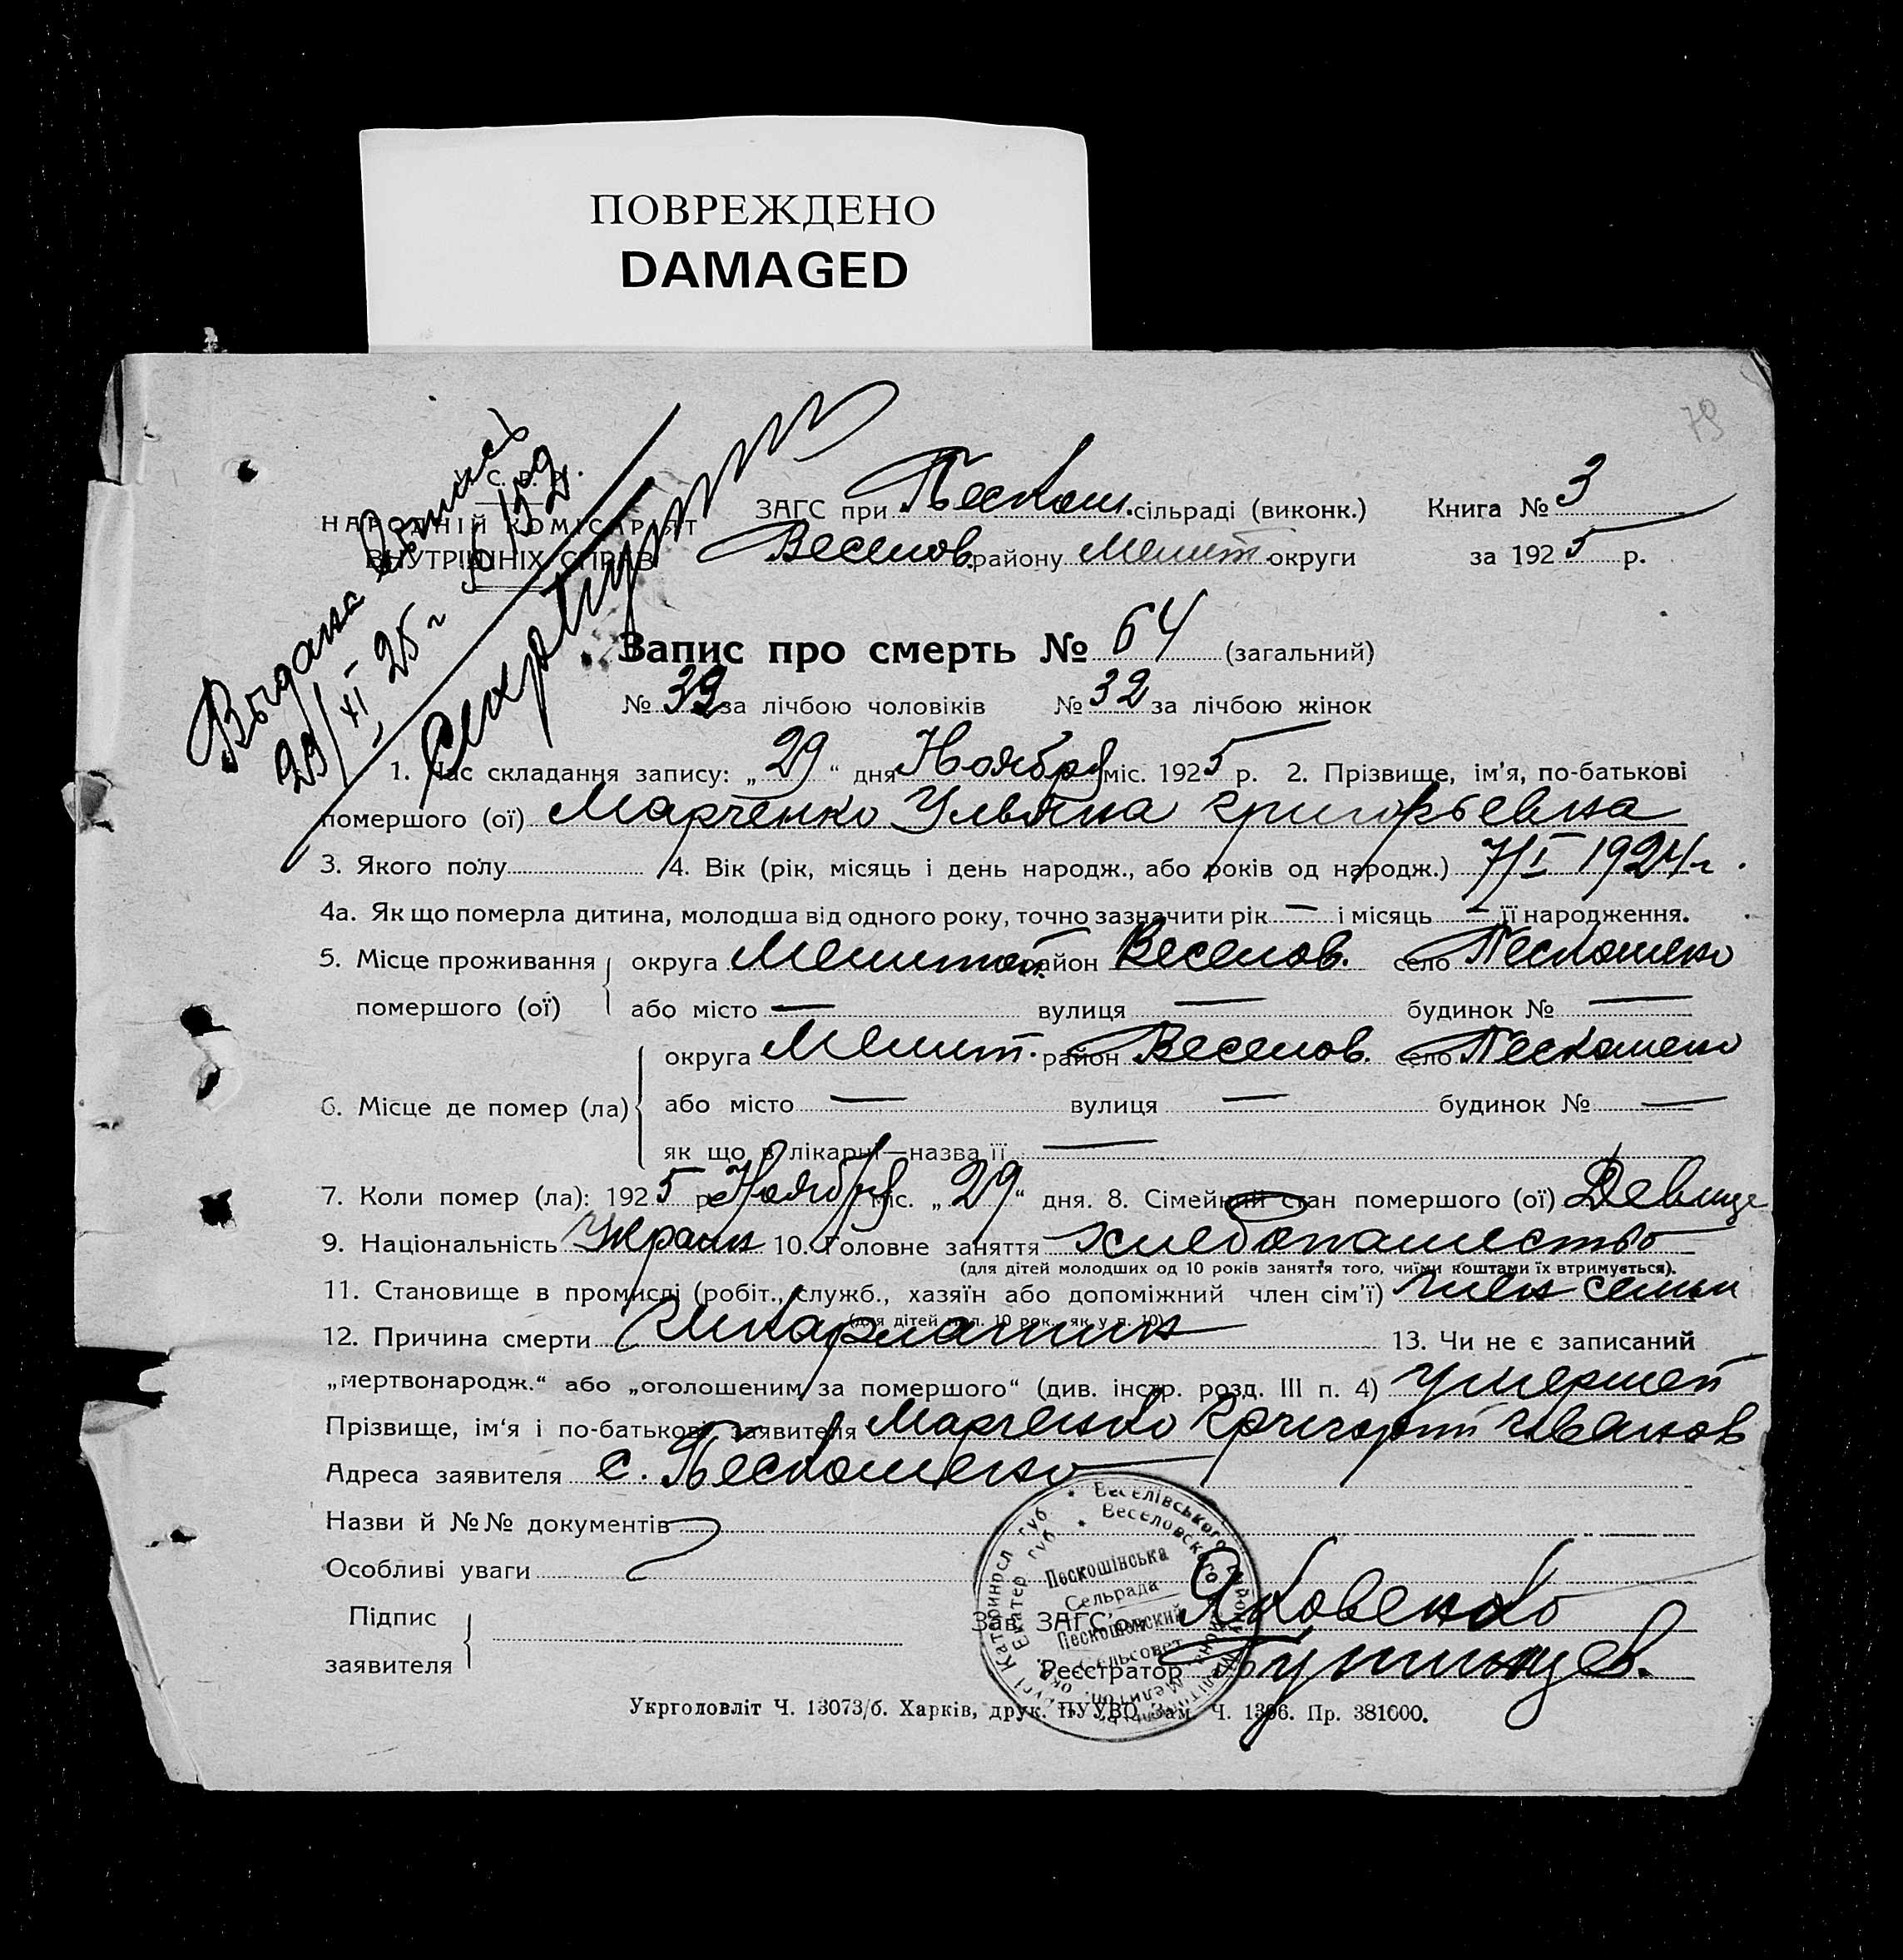 ПОВРЕЖДЕНО
DAMAGED
79
С. Р. Р.
НАРОДНІЙ КОМІСАРІЯТ
ВНУТРІШНІХ СПРАВ
Выдана
29/XI 25 г
ЗАГС при Пескош. сільраді (виконк.) Книга № 3
Веселов. району Мелит округи за 1925 р.
Запис про смерть № 64 (загальний)
№ 32 за лічбою чоловіків № 32 за лічбою жінок
1. Час складання запису: „29“ дня Ноября міс. 1925 р. 2. Прізвище, ім'я, по-батькові
помершого (ої) Марченко Ульяна Григорьевна
3. Якого полу 4. Вік (рік, місяць і день народж., або років од народж.) 7/I 1924 г.
4а. Як що померла дитина, молодша від одного року, точно зазначити рік — і місяць — її народження.
5. Місце проживання округа Мелитоп. район Веселов. село Пескошено
помершого (ої) або місто — вулиця — будинок № —
округа Мелит. район Веселов. село Пескошено
6. Місце де помер (ла) або місто — вулиця — будинок № —
як що в лікарні—назва її —
7. Коли помер (ла): 1925 р. Ноября міс. „29“ дня. 8. Сімейний стан помершого (ої) Девица
9. Національність Украин 10. Головне заняття хлебопашество
(для дітей молодших од 10 років заняття того, чиїми коштами їх втримується).
11. Становище в промислі (робіт., служб., хазяїн або допоміжний член сім'ї) член семьи
(для дітей мол. 10 рок., як у п. 10)
12. Причина смерти Скарлатин 13. Чи не є записаний
„мертвонародж.“ або „оголошеним за помершого“ (див. інстр. розд. III п. 4) умершей
Прізвище, ім‘я і по-батькові заявителя Марченко Григорий Иванов
Адреса заявителя с. Пескошено
Назви й №№ документів
Особливі уваги
Підпис
заявителя
Зав. ЗАГС'ом Яковенко
Реєстратор
Веселівського
Веселовского
Пескошінська
Сельрада
Пескошинский
Сельсовет
Укрголовліт Ч. 13073/б. Харків, друк. ПУУВО. Зам. Ч. 1306. Пр. 381000.